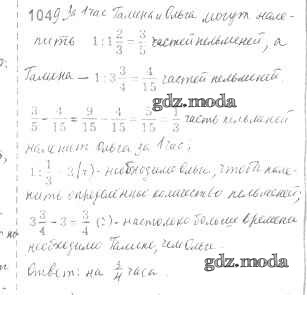 1049. За 1 час Галина и Ольга могут нале-
пить 1 : 1 2/3 = 3/5 частей пельменей, а
Галина – 1 : 3 3/4 = 4/15 частей пельменей.
gdz.moda
3/5 - 4/15 = 9/15 - 4/15 = 5/15 = 1/3 часть пельменей
налепит Ольга за 1 час;
1 : 1/3 = 3 (ч) - необходимо Ольге, чтобы нале-
пить определенное количество пельменей;
3 3/4 - 3 = 3/4 (ч) - настолько больше времени
необходимо Галине, чем Ольге.
gdz.moda
Ответ: на 3/4 часа.